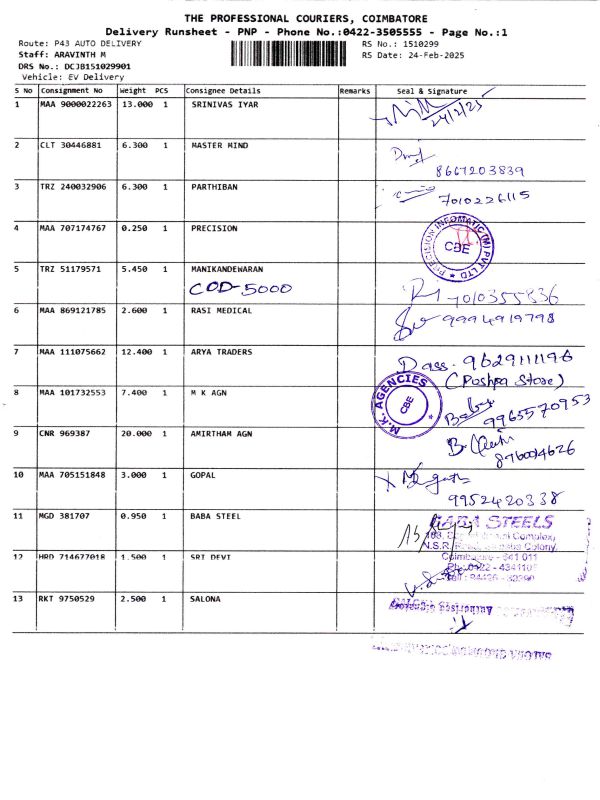 THE PROFESSIONAL COURIERS, COIMBATORE
Delivery Runsheet - PNP - Phone No.:0422-3505555 - Page No.:1
Route: P43 AUTO DELIVERY RS No.: 1510299
Staff: ARAVINTH M RS Date: 24-Feb-2025
DRS No.: DCJB151029901
Vehicle: EV Delivery
S No Consignment No Weight PCS Consignee Details Remarks Seal & Signature
1 MAA 9000022263 13.000 1 SRINIVAS IYAR
24/2/25
2 CLT 30446881 6.300 1 MASTER MIND
8667203839
3 TRZ 240032906 6.300 1 PARTHIBAN
7010226115
4 MAA 707174767 0.250 1 PRECISION
PRECISION INFOMATIC (M) PVT LTD
CBE
5 TRZ 51179571 5.450 1 MANIKANDEWARAN
COD-5000
7010355836
6 MAA 869121785 2.600 1 RASI MEDICAL
9994919798
7 MAA 111075662 12.400 1 ARYA TRADERS
Dass. 9629111196
(Poshpa Store)
8 MAA 101732553 7.400 1 M K AGN
M.K. AGENCIES
CBE
9965570953
9 CNR 969387 20.000 1 AMIRTHAM AGN
10 MAA 705151848 3.000 1 GOPAL
9952420338
11 MGD 381707 0.950 1 BABA STEEL
BABA STEELS
Complex,
N.S.R. Colony,
Coimbatore - 641 011
Ph: 0422 - 4341105
12 HRD 714677018 1.500 1 SRI DEVI
13 RKT 9750529 2.500 1 SALONA
Authorised Signatory